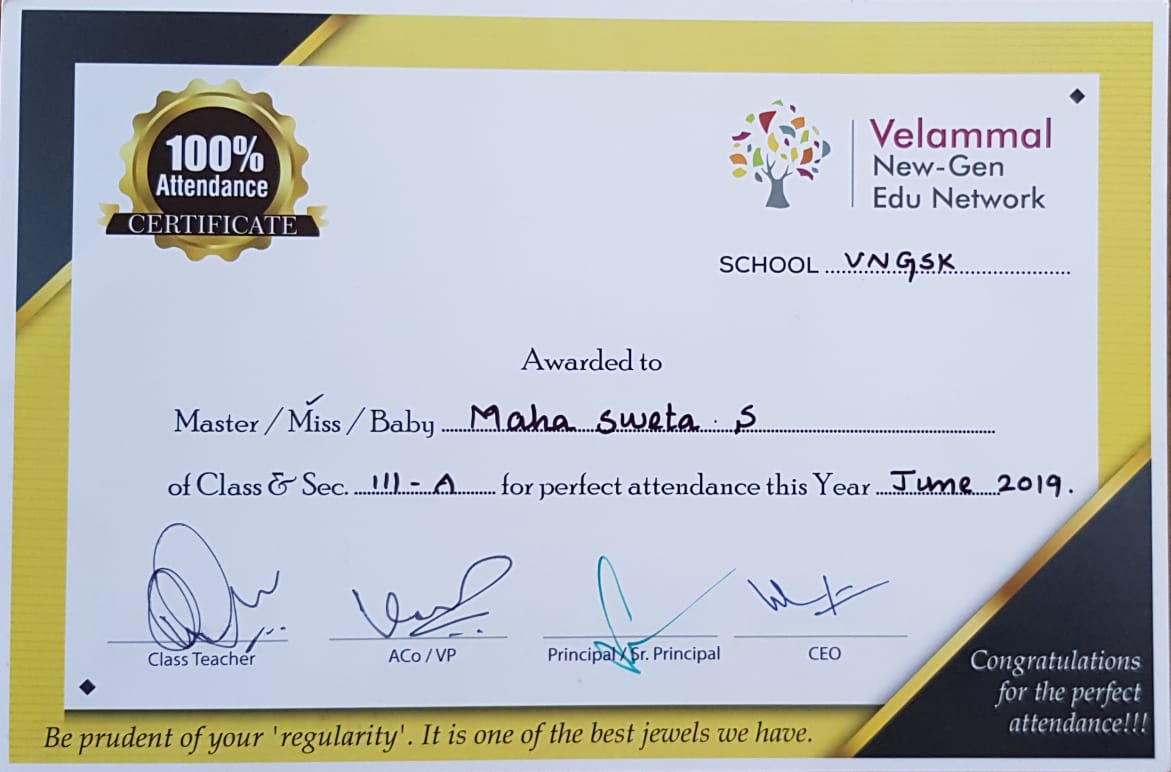 100%
Attendance
CERTIFICATE
Velammal
New-Gen
Edu Network
SCHOOL VNGSK
Awarded to
Master / Miss / Baby Maha Sweta. S
of Class & Sec. III - A for perfect attendance this Year June 2019.
Class Teacher ACo / VP Principal / Sr. Principal CEO
Congratulations
for the perfect
attendance!!!
Be prudent of your 'regularity'. It is one of the best jewels we have.